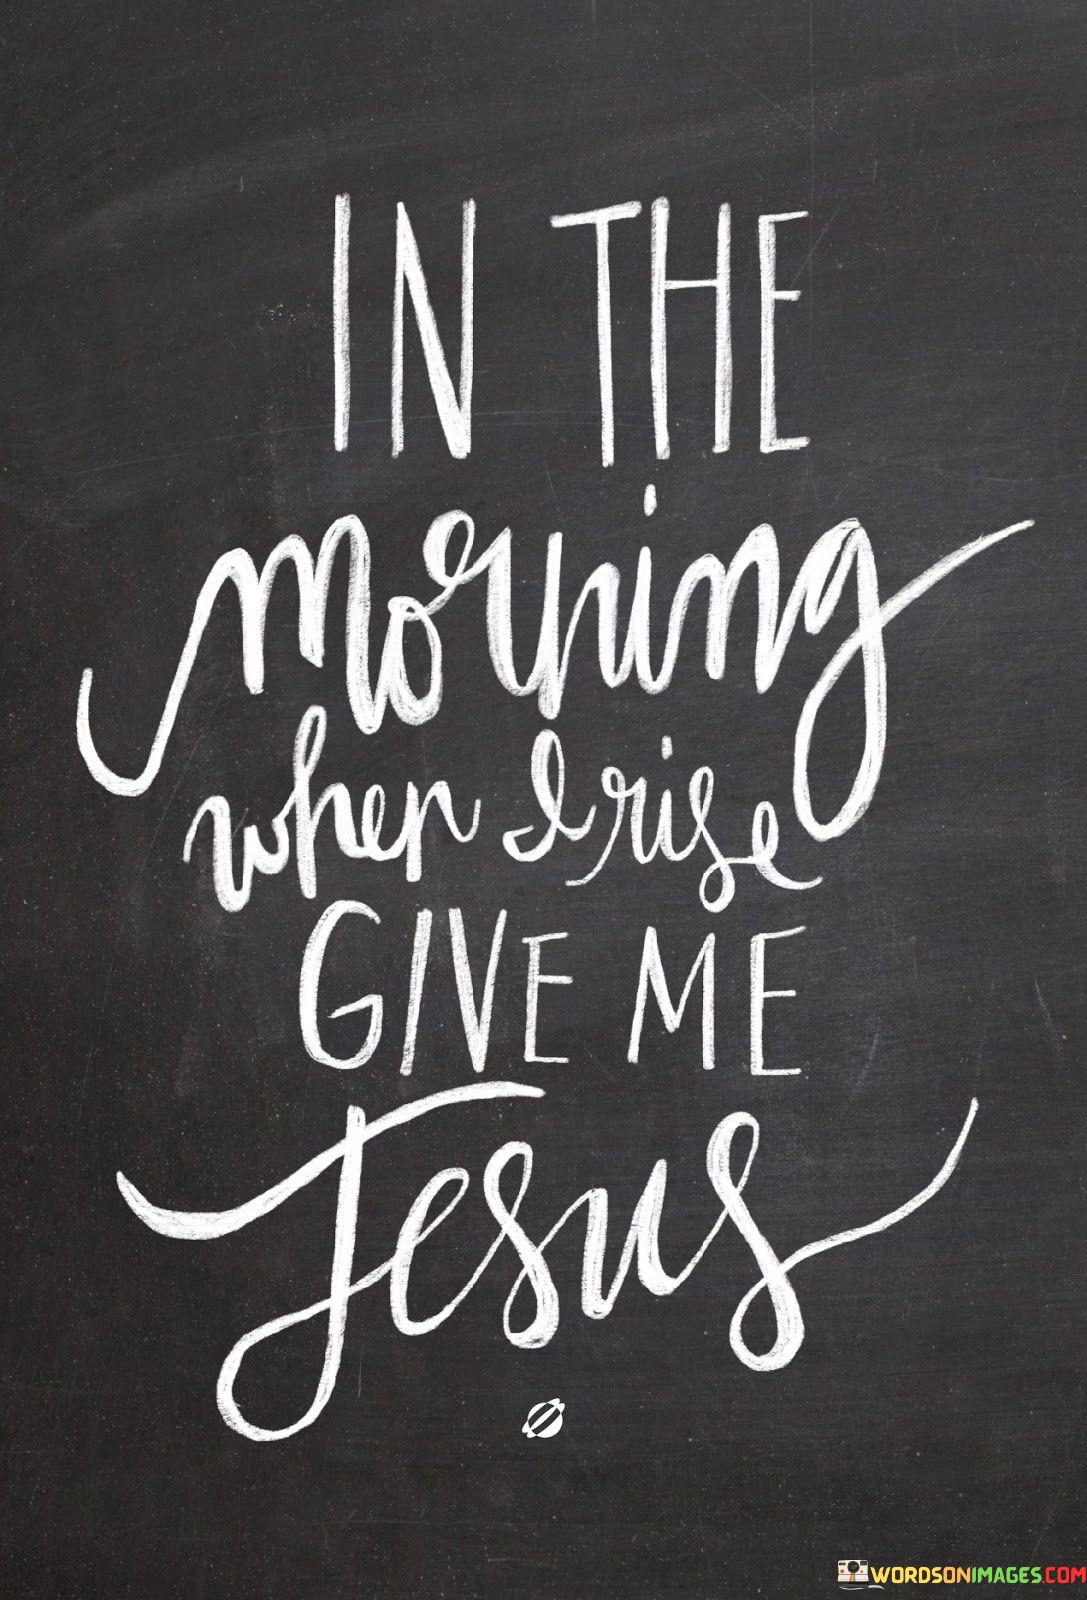 IN THE
morning
when I rise
GIVE ME
Jesus
WORDSONIMAGES.COM